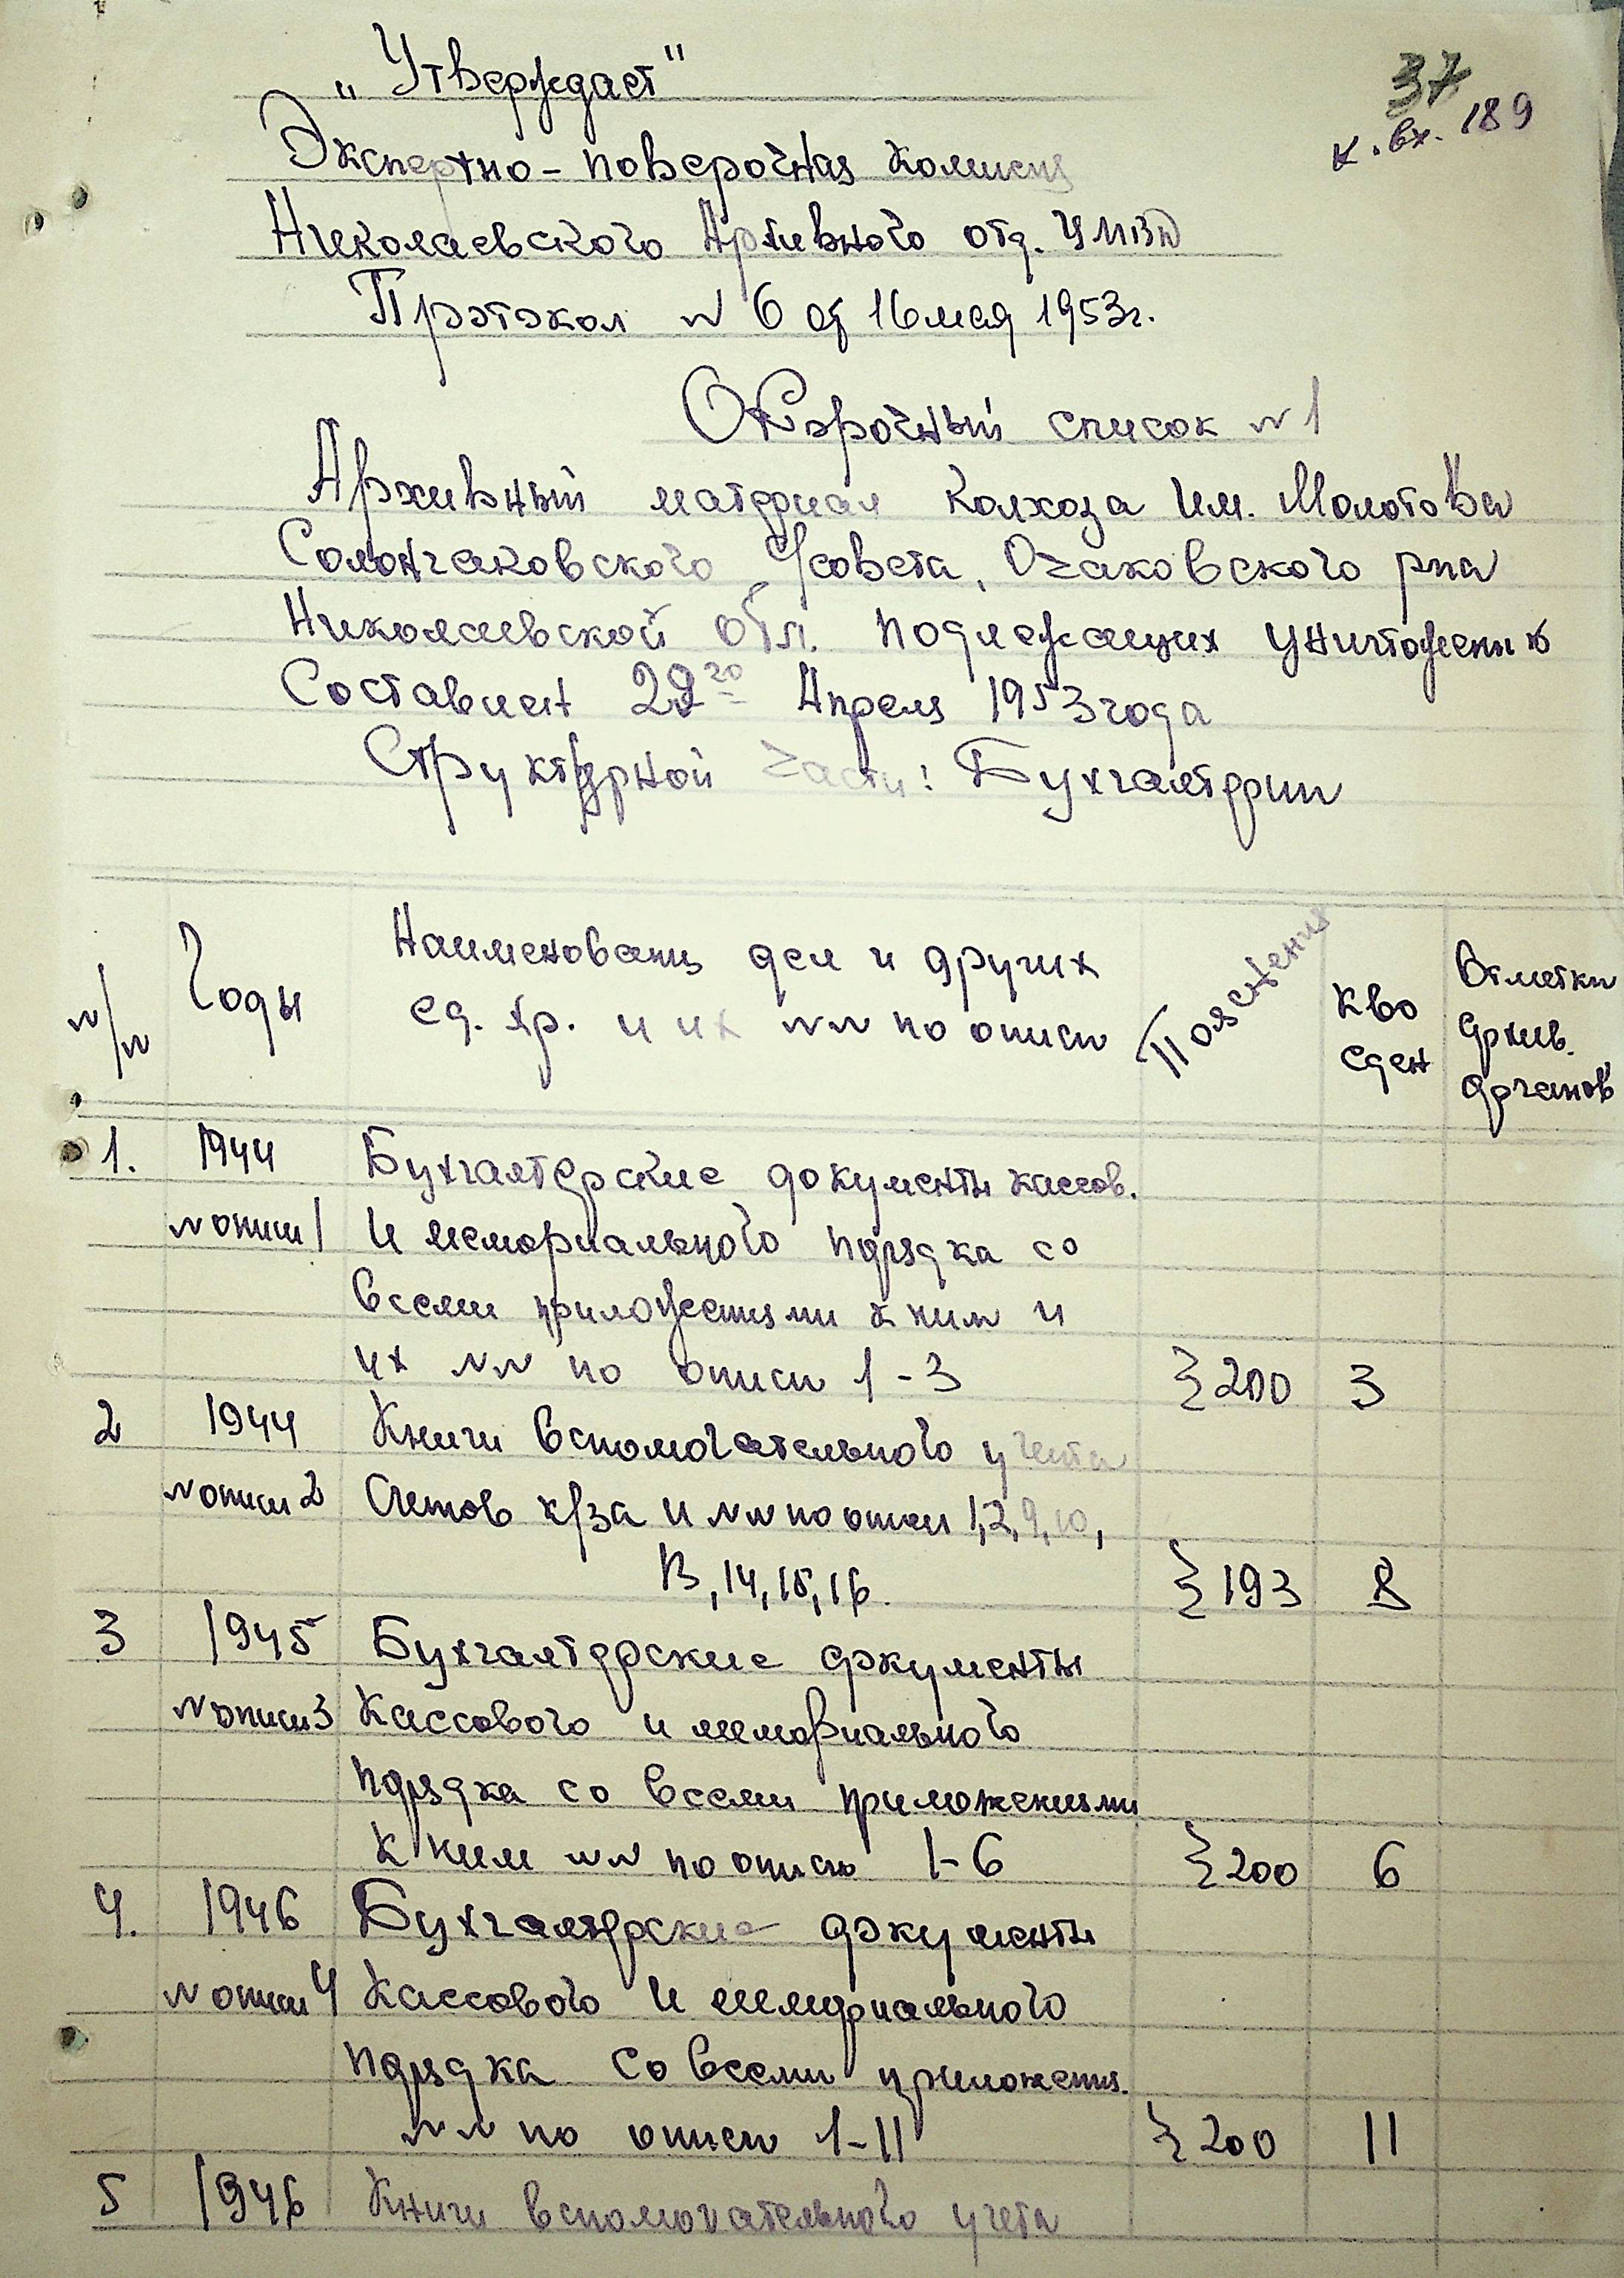 „Утверждает"
37
к. вх. 189
Экспертно-поверочная комисия
Николаевского Архивного отд. УМВД
Протокол № 6 от 16 мая 1953г.
Отборочный список № 1
Архивный материал колхоза Им. Молотова
Солончаковского с/совета, Очаковского р-на
Николаевской обл. подлежащих уничтожению
Составлен 29го Апреля 1953 года
Структурной части: Бухгалтерии
№/№
Годы
Наименование дел и других
ед. хр. и их №№ по описи
Пояснения
Кво
един
Отметки
архив.
органов
1. 1944 Бухгалтерские документы кассов.
№ описи 1 И мемориального порядка со
всеми приложениями к ним и
их №№ по описи 1-3 } 200 3
2 1944 Книги вспомогательного учета
№ описи 2 Счетов к/за и №№ по описи 1,2,9,10,
13,14,15,16. } 193 8
3 1945 Бухгалтерские документы
№ описи 3 Кассового и мемориального
порядка со всеми приложениями
к ним №№ по описи 1-6 } 200 6
4. 1946 Бухгалтерские документы
№ описи 4 Кассового и мемориального
порядка со всеми приложения.
№№ по описи 1-11 } 200 11
5 1946 Книги вспомогательного учета